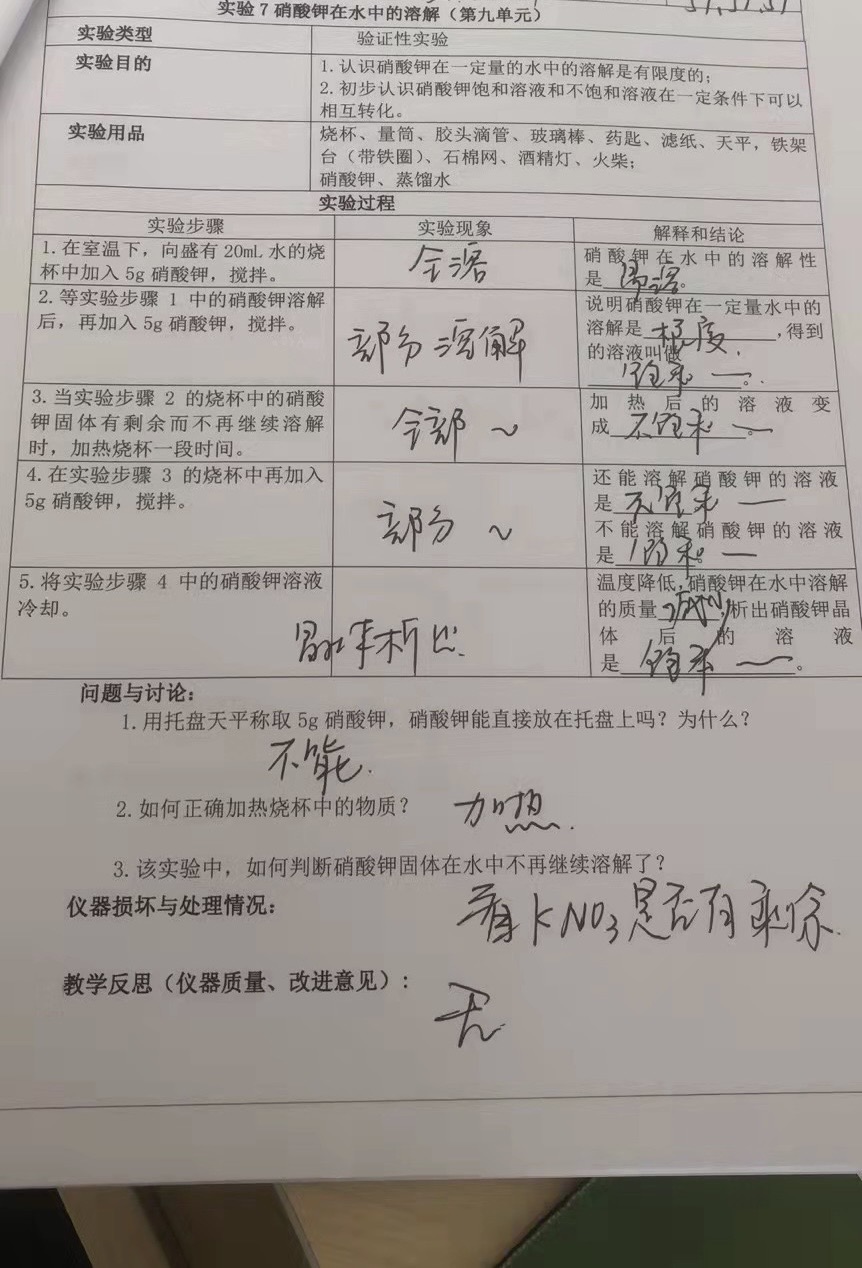 实验7 硝酸钾在水中的溶解（第九单元）
实验类型 验证性实验
实验目的
1.认识硝酸钾在一定量的水中的溶解是有限度的；
2.初步认识硝酸钾饱和溶液和不饱和溶液在一定条件下可以
相互转化。
实验用品
烧杯、量筒、胶头滴管、玻璃棒、药匙、滤纸、天平，铁架
台（带铁圈）、石棉网、酒精灯、火柴；
硝酸钾、蒸馏水
实验过程
实验步骤 实验现象 解释和结论
1.在室温下，向盛有20mL水的烧
杯中加入5g硝酸钾，搅拌。
全溶
硝酸钾在水中的溶解性
是易溶。
2.等实验步骤1中的硝酸钾溶解
后，再加入5g硝酸钾，搅拌。
部分溶解
说明硝酸钾在一定量水中的
溶解是 度，得到
的溶液叫做
饱和～。
3.当实验步骤2的烧杯中的硝酸
钾固体有剩余而不再继续溶解
时，加热烧杯一段时间。
全部～
加热后的溶液变
成不饱和～。
4.在实验步骤3的烧杯中再加入
5g硝酸钾，搅拌。
部分～
还能溶解硝酸钾的溶液
是不饱和—
不能溶解硝酸钾的溶液
是饱和。—
5.将实验步骤4中的硝酸钾溶液
冷却。
晶体析出.
温度降低，硝酸钾在水中溶解
的质量减小，析出硝酸钾晶
体后的溶液
是饱和～。
问题与讨论：
1.用托盘天平称取5g硝酸钾，硝酸钾能直接放在托盘上吗？为什么？
不能.
2.如何正确加热烧杯中的物质？ 加热.
3.该实验中，如何判断硝酸钾固体在水中不再继续溶解了？
看KNO₃是否有剩余.
仪器损坏与处理情况：
教学反思（仪器质量、改进意见）：
无.